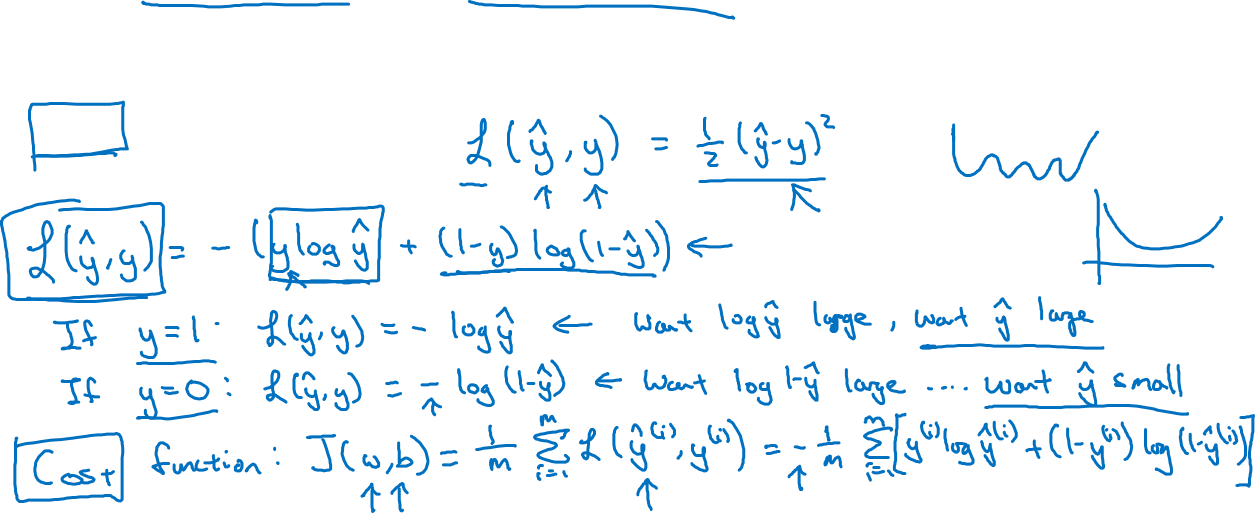 ℒ(ŷ, y) = ½(ŷ-y)²
ℒ(ŷ, y) = - (y log ŷ + (1-y) log(1-ŷ)) ←
If y=1: ℒ(ŷ, y) = - log ŷ ← want log ŷ large, want ŷ large
If y=0: ℒ(ŷ, y) = - log(1-ŷ) ← want log 1-ŷ large .... want ŷ small
Cost function: J(w,b) = 1/m ∑_{i=1}^{m} ℒ(ŷ⁽ⁱ⁾, y⁽ⁱ⁾) = - 1/m ∑_{i=1}^{m} [y⁽ⁱ⁾ log ŷ⁽ⁱ⁾ + (1-y⁽ⁱ⁾) log(1-ŷ⁽ⁱ⁾)]